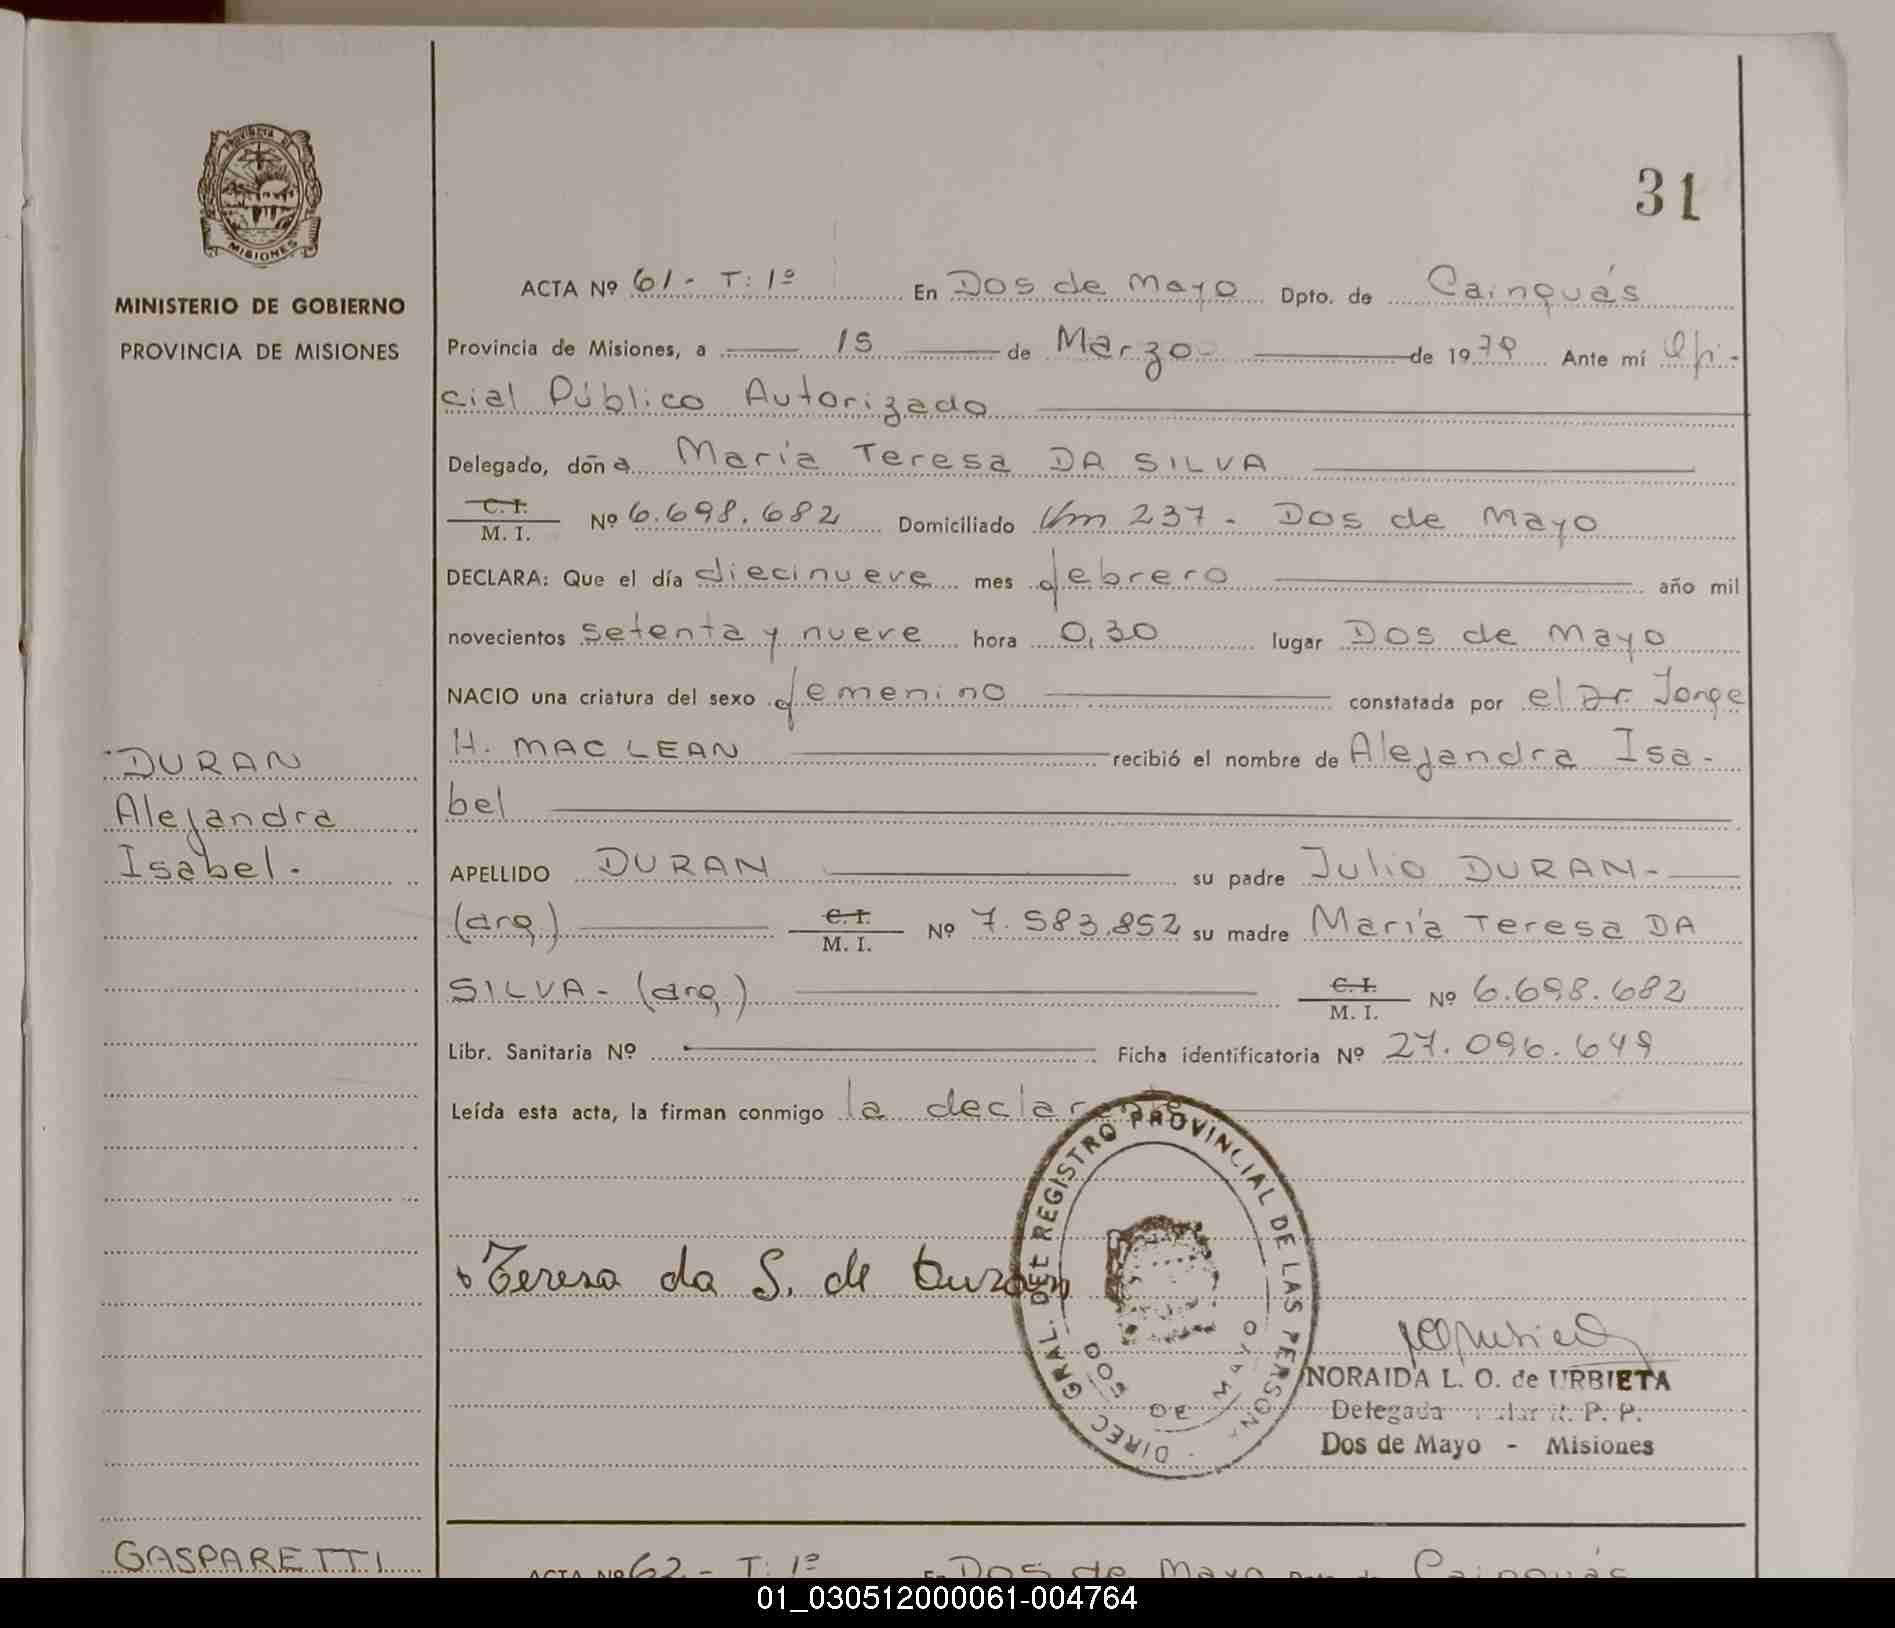 PROVINCIA DE
MISIONES
MINISTERIO DE GOBIERNO
PROVINCIA DE MISIONES
31
ACTA Nº 61 - T: 1º En Dos de Mayo Dpto. de Cainguás
Provincia de Misiones, a 15 de Marzo de 1979 Ante mí Ofi-
cial Público Autorizado
Delegado, doña María Teresa DA SILVA
C. I.
M. I. Nº 6.698.682 Domiciliado Km 237 - Dos de Mayo
DECLARA: Que el día diecinueve mes febrero año mil
novecientos setenta y nueve hora 0,30 lugar Dos de Mayo
NACIO una criatura del sexo femenino constatada por el Dr. Jorge
H. MAC LEAN recibió el nombre de Alejandra Isa-
bel
DURAN
Alejandra
Isabel.
APELLIDO DURAN su padre Julio DURAN-
(arg.) C. I.
M. I. Nº 7.583.852 su madre María Teresa DA
SILVA- (arg.) C. I.
M. I. Nº 6.698.682
Libr. Sanitaria Nº Ficha identificatoria Nº 27.096.649
Leída esta acta, la firman conmigo la declarante
Teresa da S. de Duran
DIREC. GRAL. DEL REGISTRO PROVINCIAL DE LAS PERSONA
DOS DE MAYO
NORAIDA L. O. de URBIETA
Delegada R. P. P.
Dos de Mayo - Misiones
GASPARETTI
ACTA Nº 62 - T: 1º En Dos de Mayo Dpto. de Cainguás
01_030512000061-004764